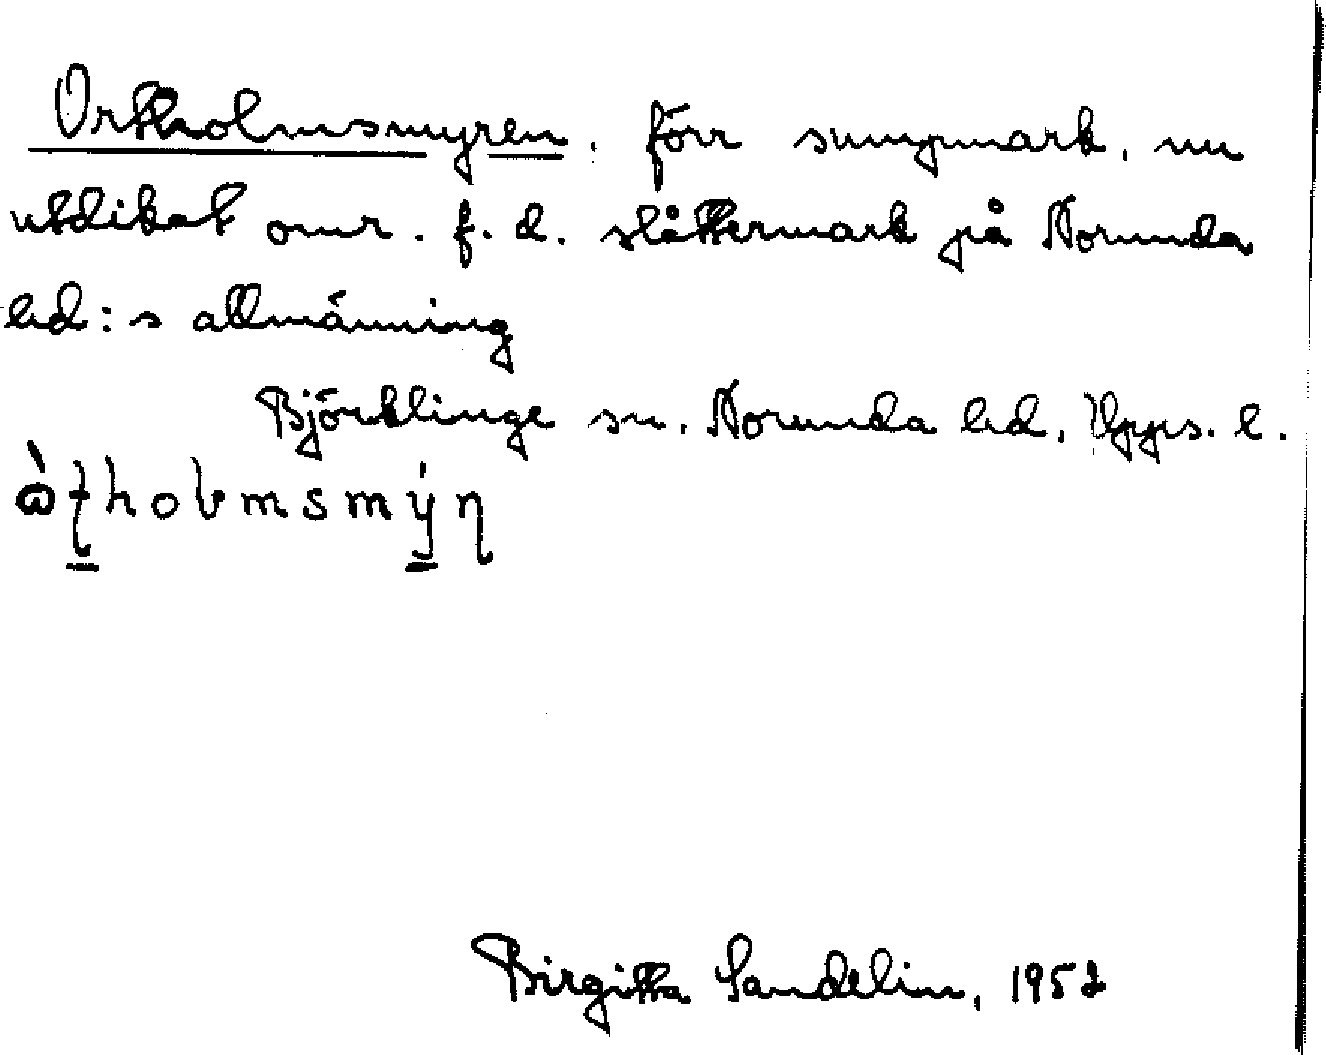 Ortholmsmyren, förr sumpmark, nu
utdikat omr. f. d. slåttermark på Norunda
hd:s allmänning
Björklinge sn. Norunda hd, Upps. l.
Birgitta Sandelin, 1952